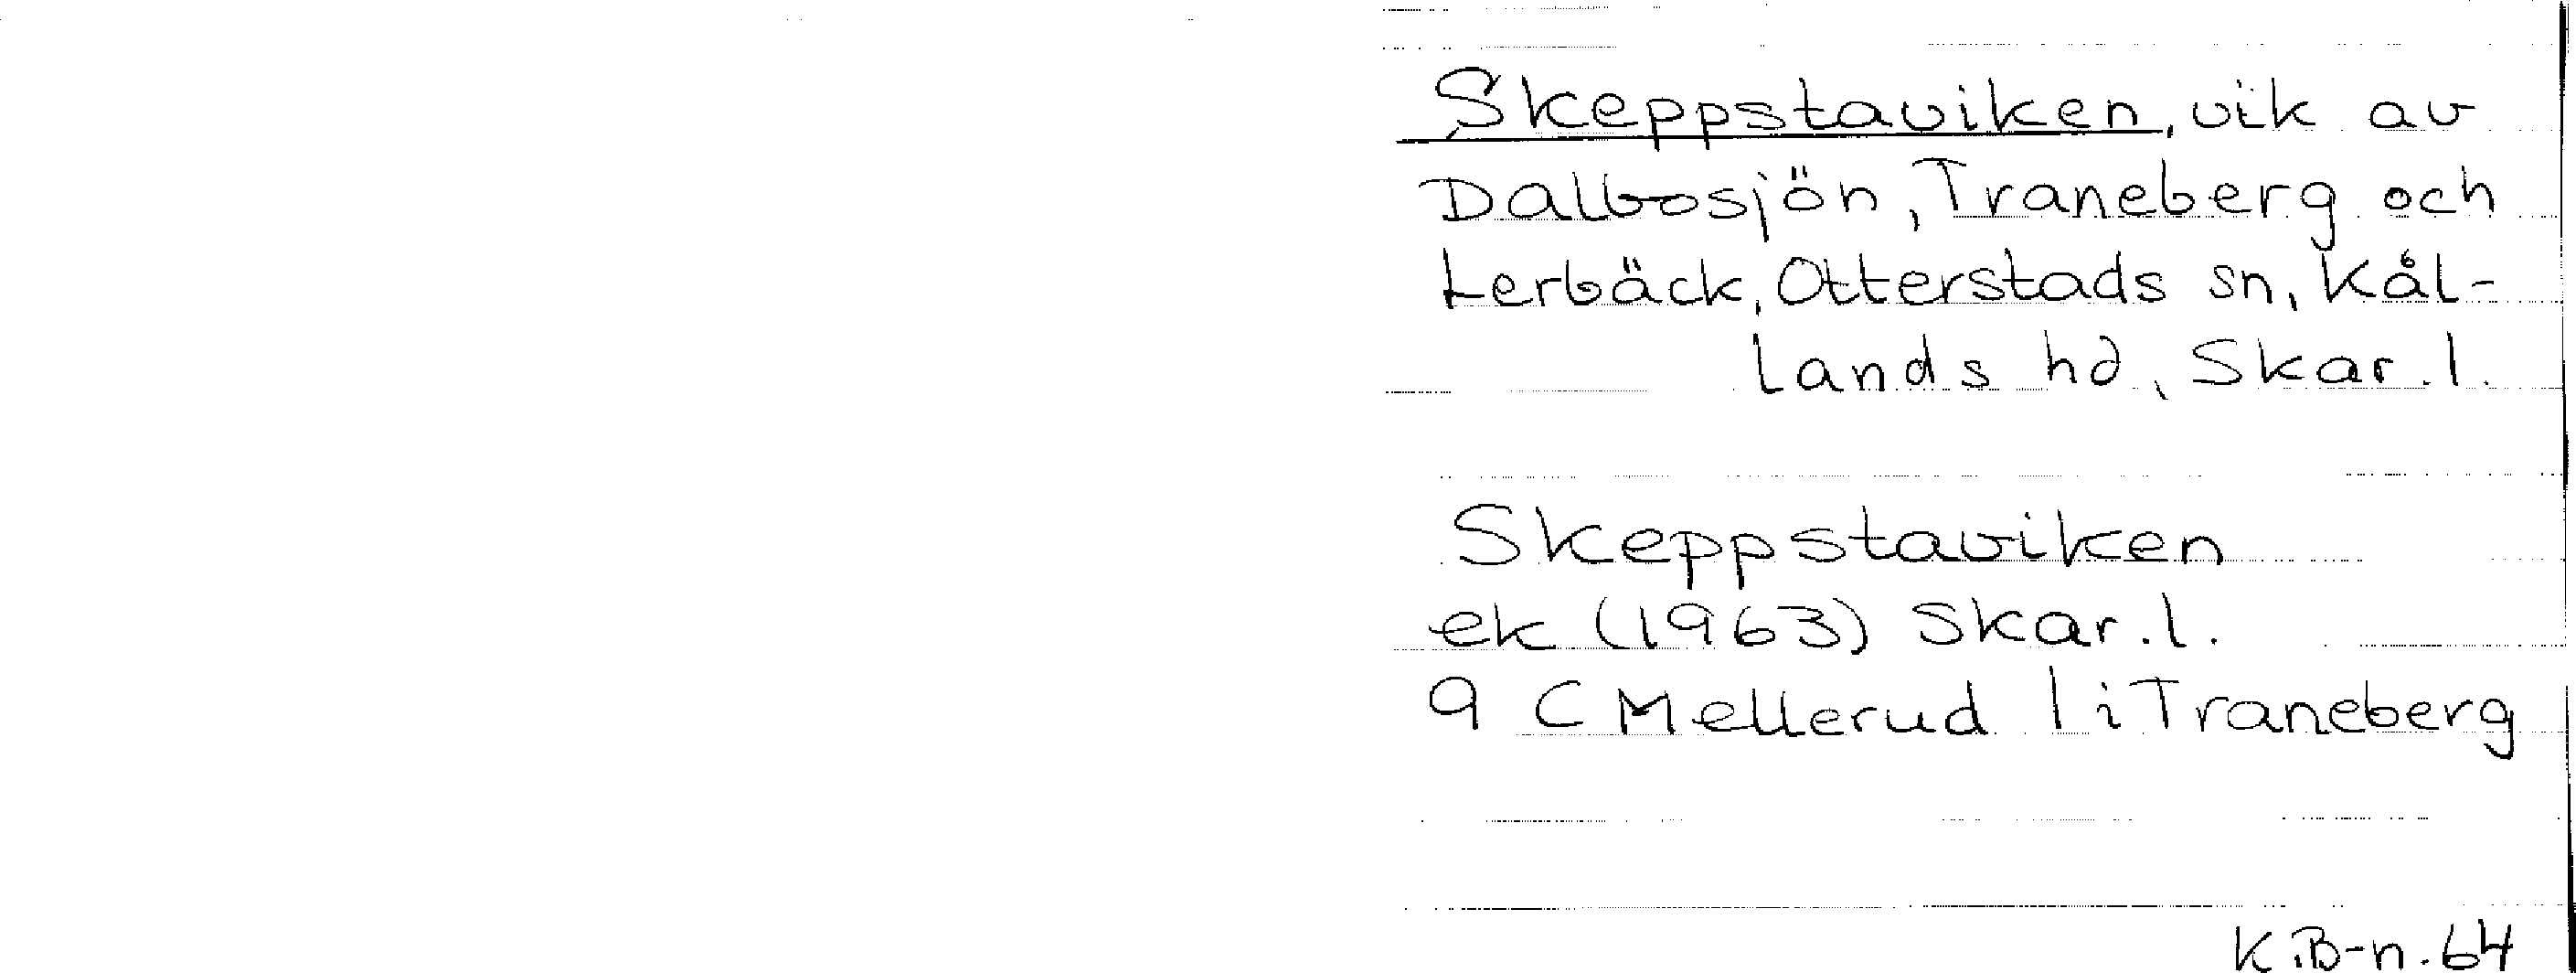 Skeppstaviken, vik av
Dalbosjön, Traneberg och
Lerbäck, Otterstads sn, Kål-
lands hd, Skar. l.
Skeppstaviken
ek (1963) Skar. l.
9 C Mellerud l i Traneberg
K.B-n. 64